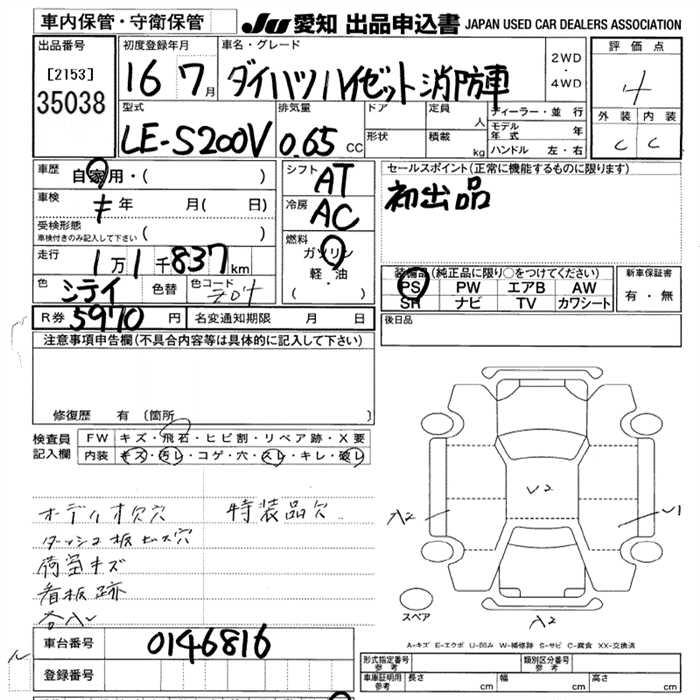 車内保管・守衛保管
JU 愛知 出品申込書 JAPAN USED CAR DEALERS ASSOCIATION
出品番号
[2153]
35038
初度登録年月
16 7月
車名・グレード
ダイハツハイゼット消防車
2WD
・
4WD
評価点
4
外装 内装
C C
型式
LE-S200V
排気量
0.65 CC
ドア
形状
定員 人
積載 kg
ディーラー・並行
モデル年式 年
ハンドル 左・右
車歴
自家用・( )
車検
年 月( 日)
受検形態
車検付きのみ記入して下さい ( )
走行
1万1千837km
色
シテイ
色替
色コード
シフト
AT
冷房
AC
燃料
ガソリン
軽・油
( )
セールスポイント(正常に機能するものに限ります)
初出品
装備品(純正品に限り○をつけてください)
PS PW エアB AW
SR ナビ TV カワシート
新車保証書
有・無
R券 5970 円 名変通知期限 月 日
後日品
注意事項申告欄(不具合内容等は具体的に記入して下さい)
修復歴 有 〔箇所 〕
検査員
記入欄
FW キズ・飛石・ヒビ割・リペア跡・X要
内装 キズ・汚レ・コゲ・穴・スレ・キレ・破レ
オーディオ欠穴 特装品欠
ダッシュ板ビス穴
荷室キズ
看板跡
V2
A2
V1
スペア
A2
A-キズ E-エクボ U-凹み W-補修跡 S-サビ C-腐食 XX-交換済
車台番号
0146816
登録番号
形式指定番号
参考
類別区分番号
参考
車庫証明用
参考
長さ cm 幅 cm 高さ cm